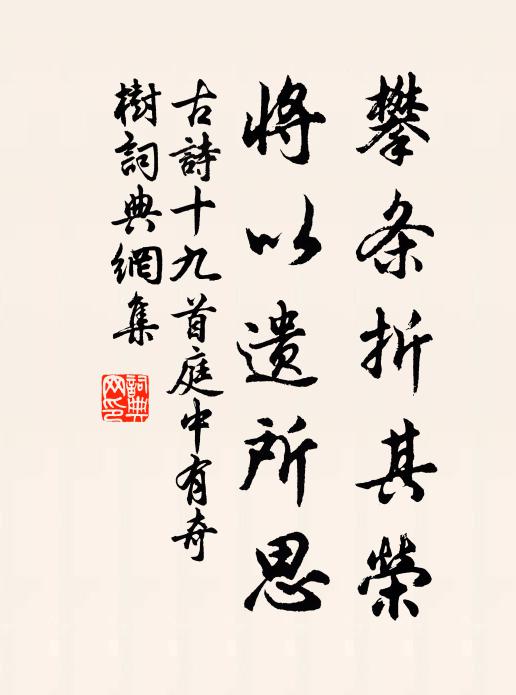 攀条折其榮
将以遗所思
古詩十九首庭中有奇
樹詞典網集
詞典
网印